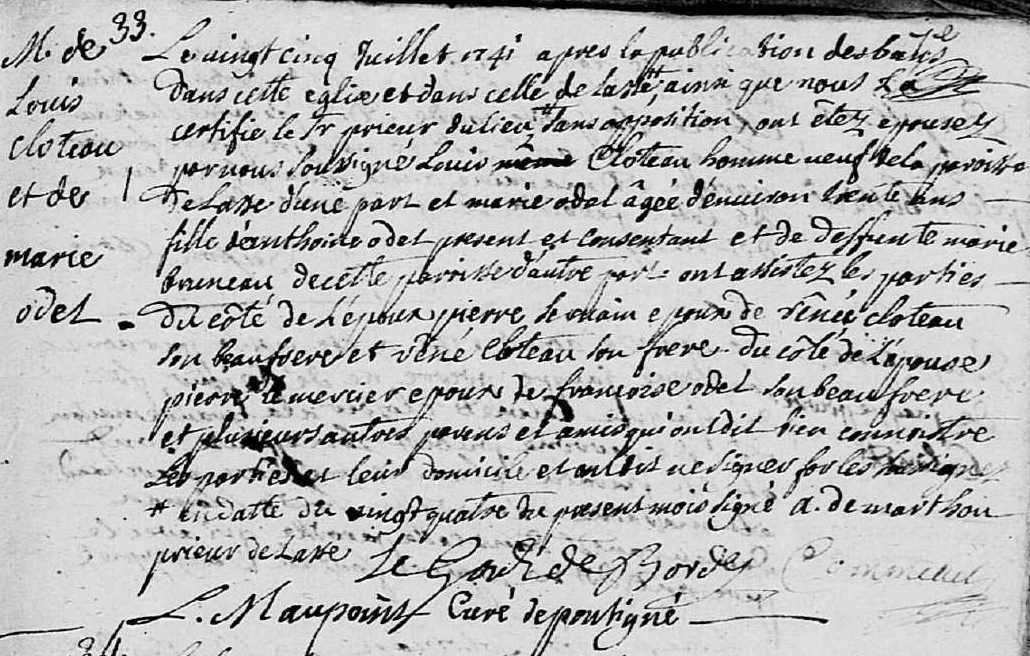 33.
M. de
Louis
cloteau
et de
marie
odet
Le vingt cinq Juillet 1741 apres la publication des bans
dans cette eglise et dans celle de Lasse, ainsi que nous L'a
certifié le Sr prieur du lieu * sans opposition, ont étez epousez
par nous soussigné Louis même Cloteau homme veuf de la paroisse
de Lasse d'une part et marie odet âgée d'environ trente ans
fille d'anthoine odet present et consentant et de deffunte marie
bruneau de cette paroisse d'autre part. ont assistez les parties
du côté de L'époux pierre epoux de rénée cloteau
son beaufrere et réné Cloteau son frere. du côté de L'épouse
pierre Lemercier epoux de françoise odet son beau frere
et plusieurs autres parens et amis qui ont dit bien connoistre
Les parties et leur domicile et ont dit ne signer fors les soussignez
* en datte du vingt quatre du present mois signé a. de marthou
prieur de Lasse Le Gardz de Bordes
L. Maupoint Curé de pontigné
34.